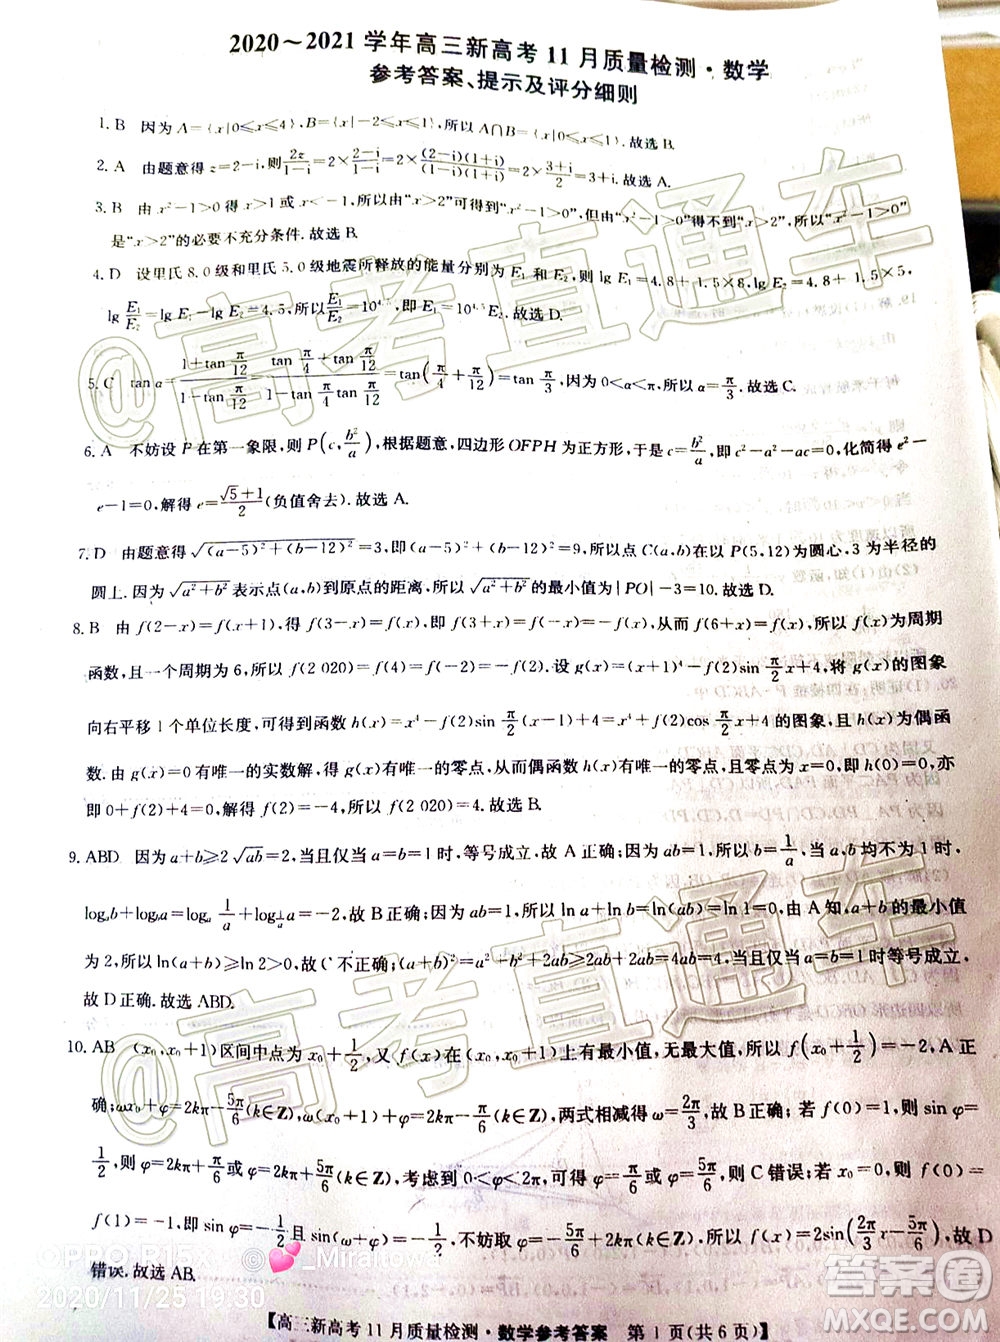 2020～2021学年高三新高考11月质量检测·数学
参考答案、提示及评分细则
1. B 因为A={x|0≤x≤4},B={x|-2≤x≤1},所以A∩B={x|0≤x≤1}.故选B.
2. A 由题意得z=2-i,则2z/(1-i)=2×(2-i)/(1-i)=2×(2-i)(1+i)/((1-i)(1+i))=2×(3+i)/2=3+i.故选A.
3. B 由x²-1>0得x>1或x<-1,由“x>2”可得到“x²-1>0”,但由“x²-1>0”得不到“x>2”,所以“x²-1>0”
是“x>2”的必要不充分条件.故选B.
4. D 设里氏8.0级和里氏5.0级地震所释放的能量分别为E₁和E₂,则lg E₁=4.8+1.5×8,lg E₂=4.8+1.5×5,
lg E₁/E₂=lg E₁-lg E₂=4.5,所以E₁/E₂=10^4.5,即E₁=10^4.5E₂.故选D.
5. C tan α=(1+tan π/12)/(1-tan π/12)=(tan π/4+tan π/12)/(1-tan π/4 tan π/12)=tan(π/4+π/12)=tan π/3,因为0<α<π,所以α=π/3.故选C.
6. A 不妨设P在第一象限,则P(c,b²/a),根据题意,四边形OFPH为正方形,于是c=b²/a,即c²-a²-ac=0,化简得e²-
e-1=0,解得e=(√5+1)/2(负值舍去).故选A.
7. D 由题意得√((a-5)²+(b-12)²)=3,即(a-5)²+(b-12)²=9,所以点C(a,b)在以P(5,12)为圆心,3为半径的
圆上.因为√(a²+b²)表示点(a,b)到原点的距离,所以√(a²+b²)的最小值为|PO|-3=10.故选D.
8. B 由f(2-x)=f(x+1),得f(3-x)=f(x),即f(3+x)=f(-x),从而f(6+x)=f(x),所以f(x)为周期
函数,且一个周期为6,所以f(2 020)=f(4)=f(-2)=f(2).设g(x)=(x+1)⁴-f(2)sin π/2 x+4,将g(x)的图象
向右平移1个单位长度,可得到函数h(x)=x⁴-f(2)sin π/2(x-1)+4=x⁴+f(2)cos π/2 x+4的图象,且为偶函
数.由g(x)=0有唯一的实数解,得g(x)有唯一的零点,从而偶函数h(x)有唯一的零点,且零点为x=0,即h(0)=0,亦
即0+f(2)+4=0,解得f(2)=-4,所以f(2 020)=4.故选B.
9. ABD 因为a+b≥2√ab=2,当且仅当a=b=1时,等号成立,故A正确;因为ab=1,所以b=1/a,当a,b均不为1时,
logₐb+log_b a=logₐ 1/a+log_{1/a} a=-2,故B正确;因为ab=1,所以ln a+ln b=ln(ab)=ln 1=0,由A知,a+b的最小值
为2,所以ln(a+b)≥ln 2>0,故C不正确;(a+b)²=a²+b²+2ab≥2ab+2ab=4ab=4,当且仅当a=b=1时等号成立,
故D正确.故选ABD.
10. AB (x₀,x₀+1)区间中点为x₀+1/2,又f(x)在(x₀,x₀+1)上有最小值,无最大值,所以f(x₀+1/2)=-2,A正
确;ωx₀+φ=2kπ-5π/6(k∈Z),ω(x₀+1)+φ=2kπ-π/6(k∈Z),两式相减得ω=2π/3,故B正确;若f(0)=1,则sin φ=
1/2,则φ=2kπ+π/6或φ=2kπ+5π/6(k∈Z),考虑到0<φ<2π,故φ=π/6或5π/6,则C错误;若x₀=0,则f(0)=
f(1)=-1,即sin φ=-1/2且sin(ω+φ)=-1/2,不妨取φ=-5π/6,此时满足条件,所以f(x)=2sin(2π/3 x-5π/6),故D
错误.故选AB.
【高三新高考11月质量检测·数学参考答案 第1页(共6页)】
@高考直通车
@高考直通车
OPPO R15x @💕_Miraitowa
2020/11/25 19:30
答案圈
MXQE.COM